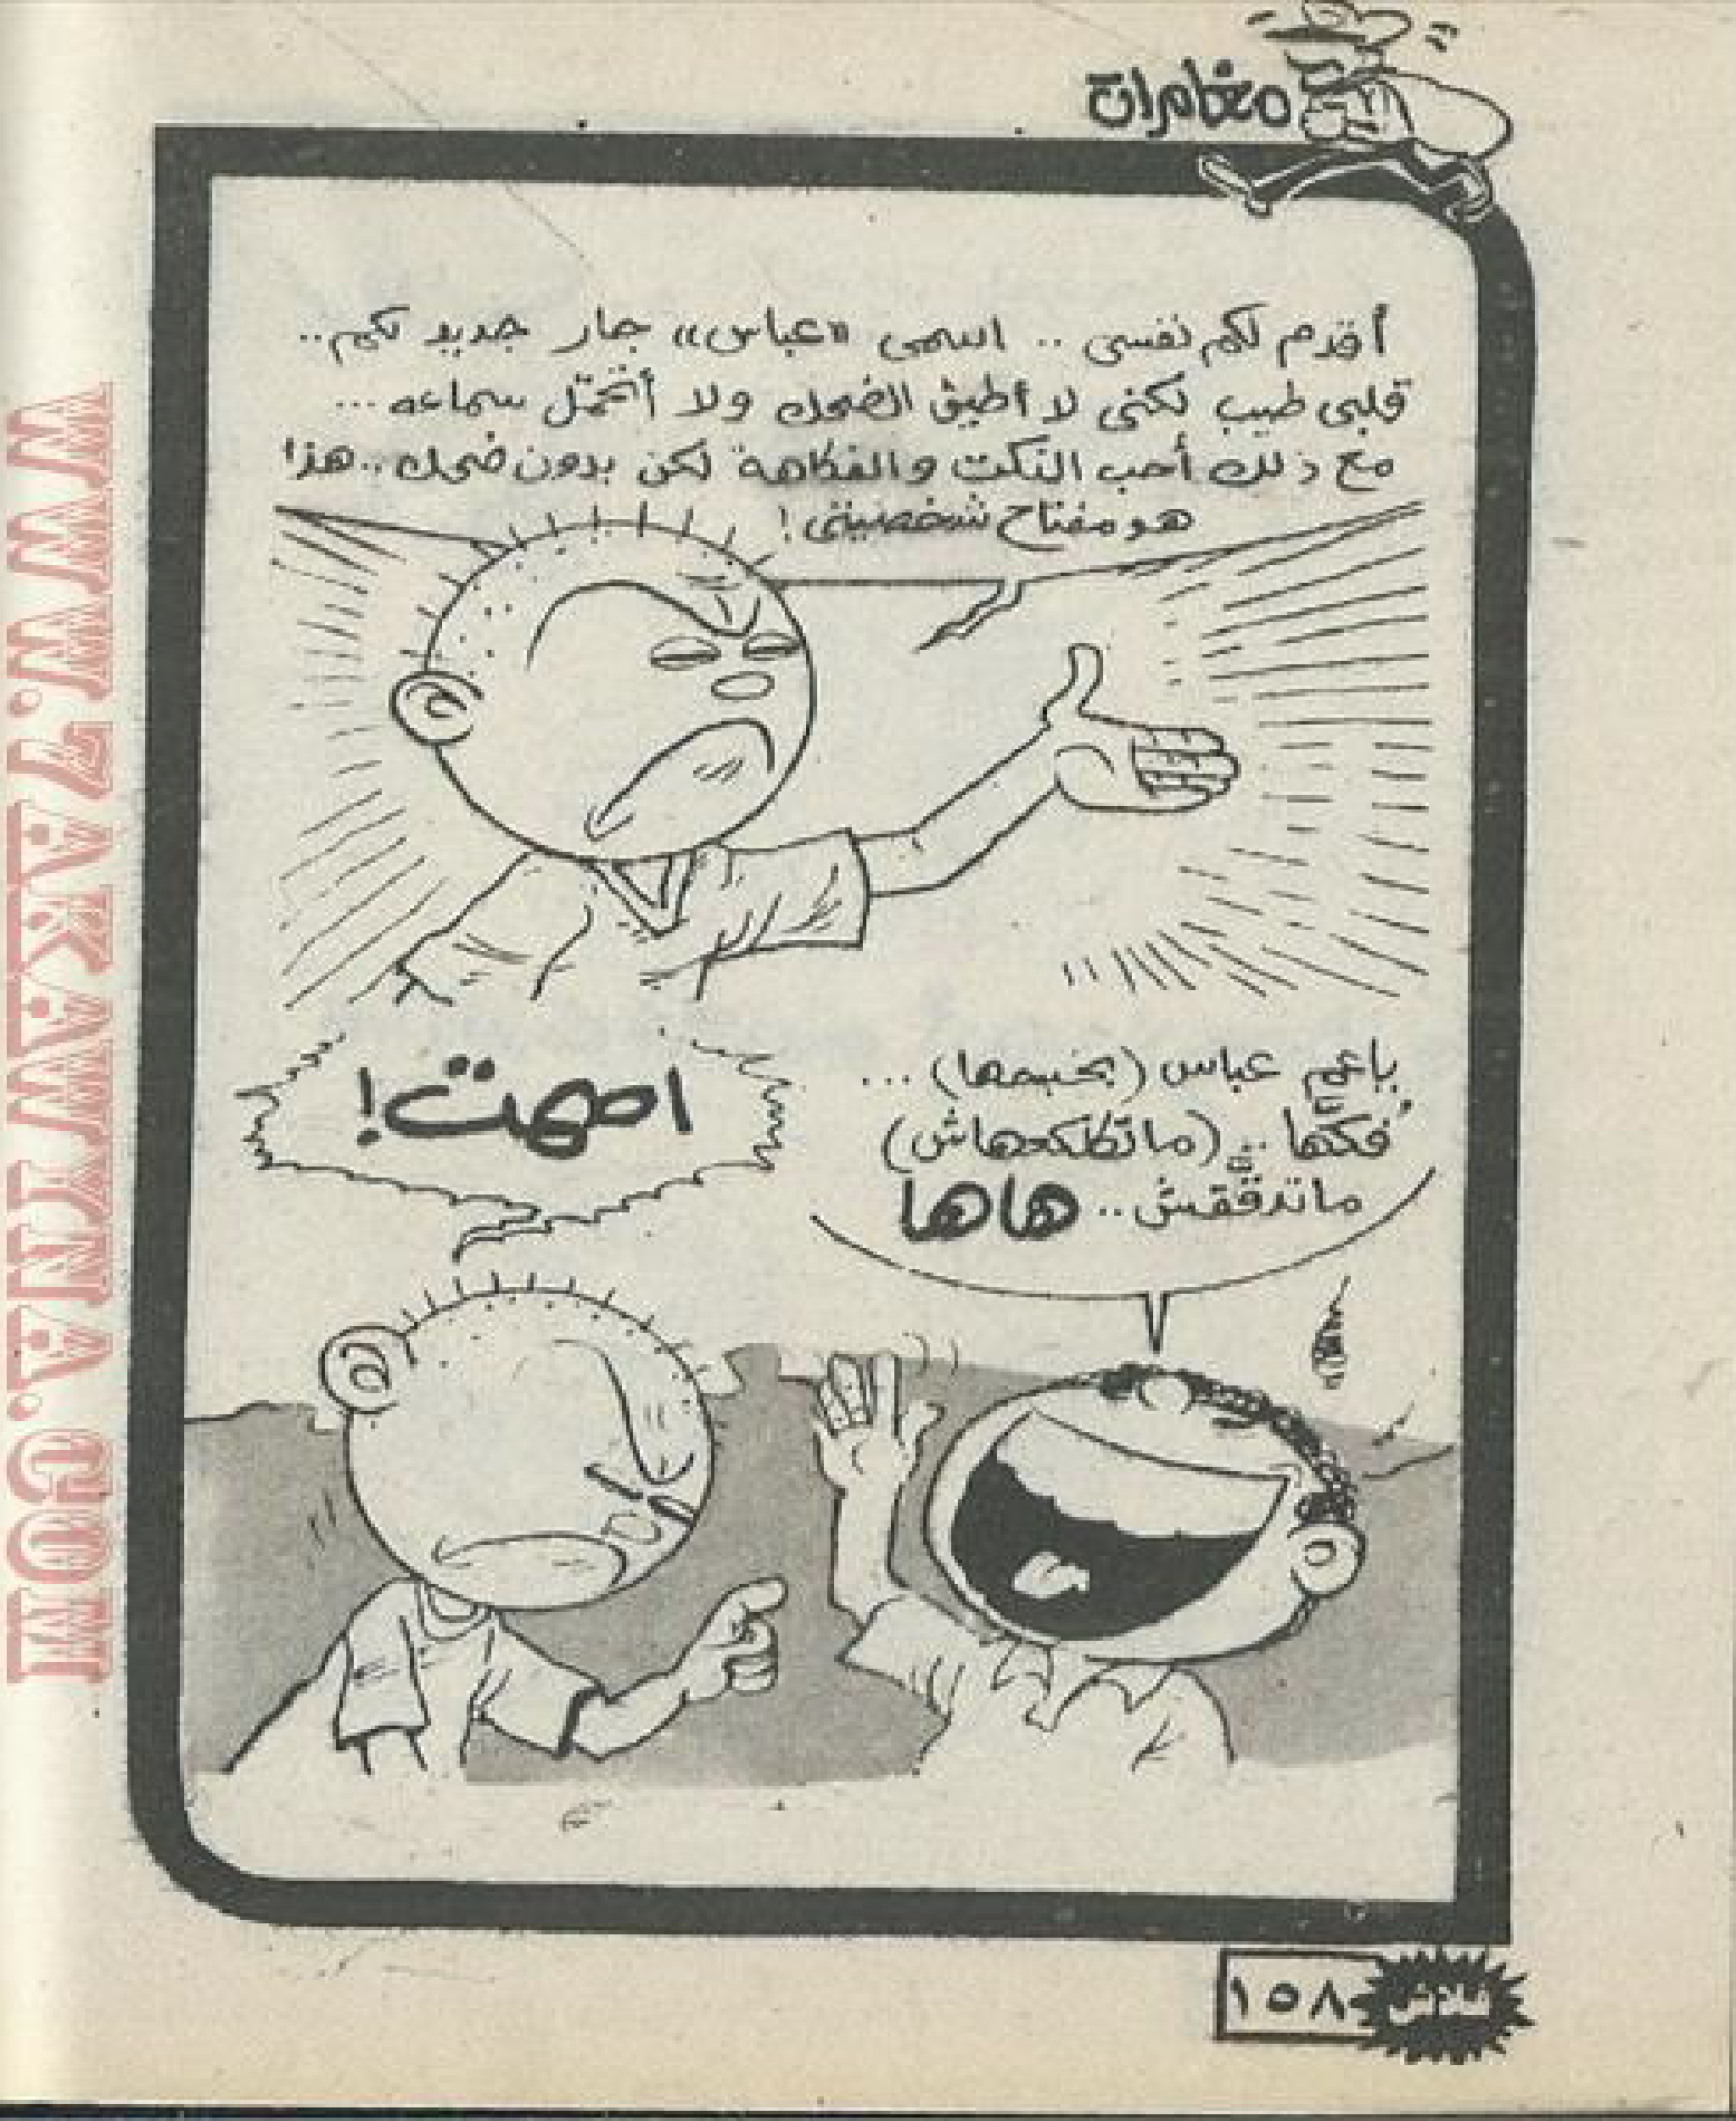 مغامرات
أقدم لكم نفسى .. اسمى «عباس» جار جديد لكم ..
قلبى طيب لكنى لا أطيق الضحك ولا أتحمّل سماعه ...
مع ذلك أحب النكت والفكاهة لكن بدون ضحك .. هذا
هو مفتاح شخصيتى !
ياعم عباس (بحبحها) ...
فكّها .. (ماتظنكعهاش)
ماتدقّقش .. هاها
اصمت !
فلاش ١٥٨
WWW.7AKAWITNA.COM